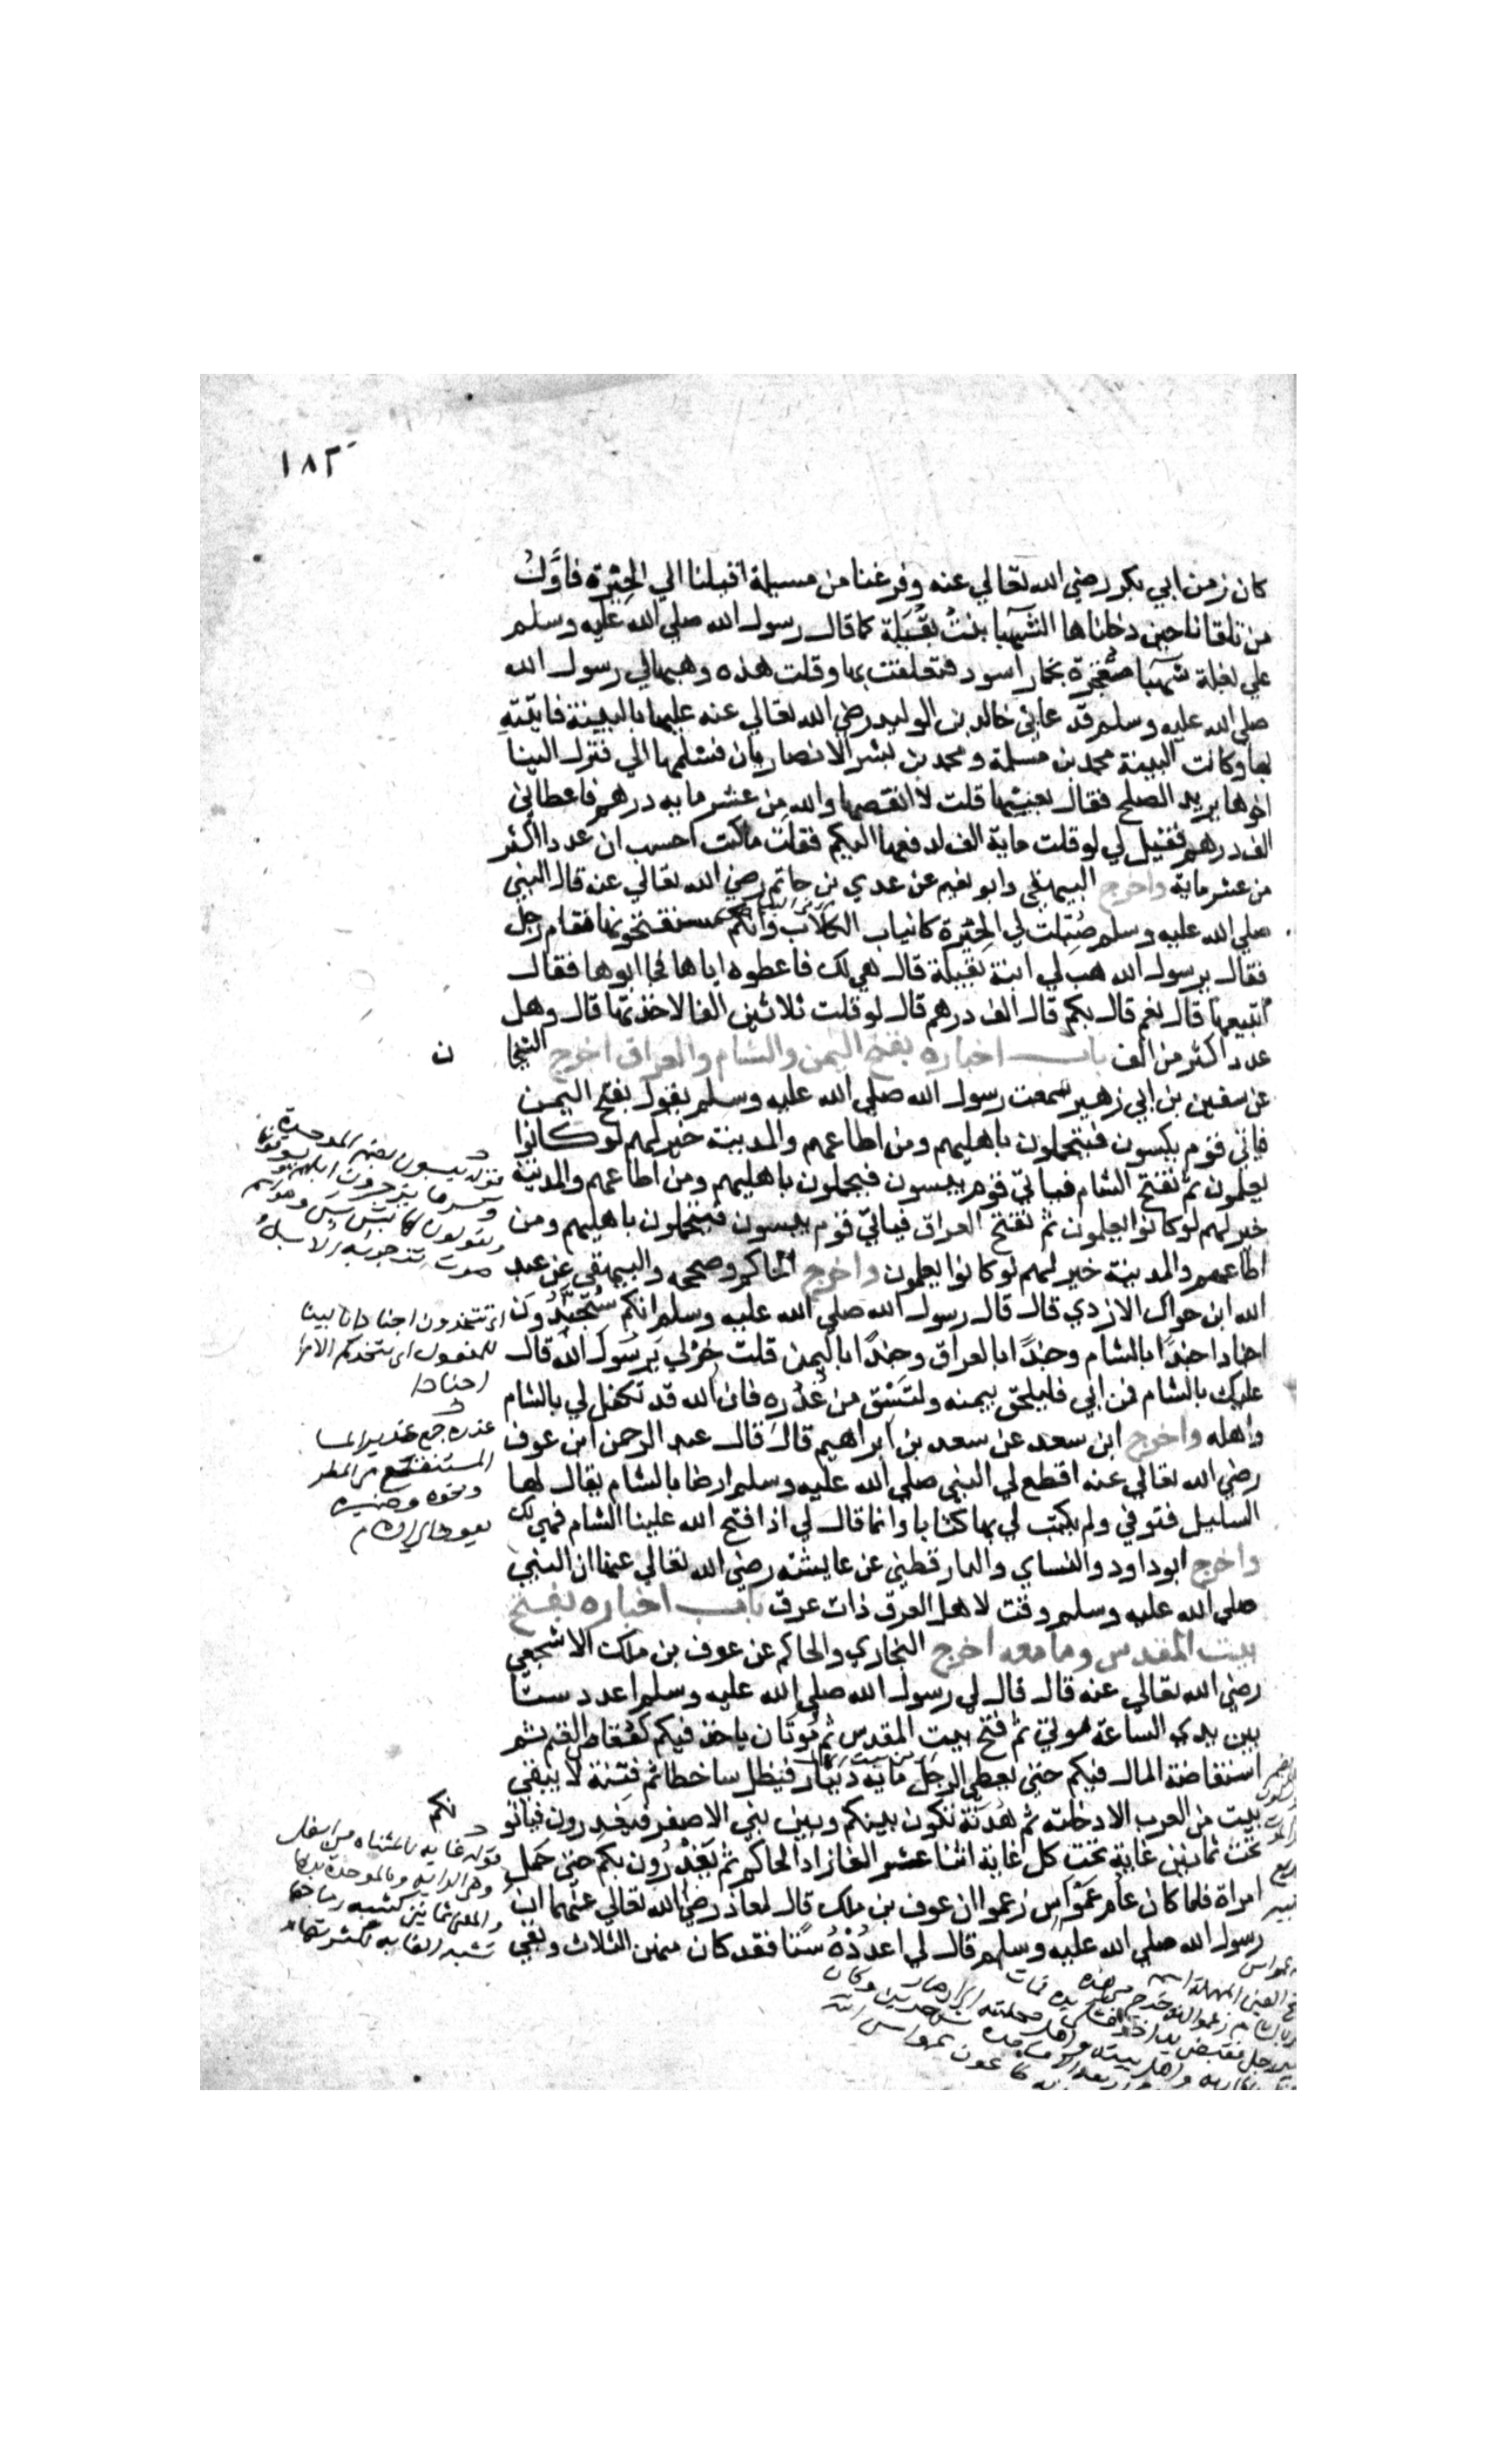 ١٨٢
كان زمن ابي بكر رضي الله تعالي عنه وفرغنا من مسيلمة اقبلنا الي الحِيْرة فاَوَّلُ
من تلقانا حين دخلناها الشَّهبا بنتُ بُقَيلة كما قال رسول الله صلي الله عليه وسلم
علي بغلة شهبا معْتجِرة بخمار اسود فتعلقت بها وقلت هذه وهبها لي رسول الله
صلي الله عليه وسلم فدعاني خالد بن الوليد رضي الله تعالي عنه عليها بالبينة فاتيته
بها وكانت البينة محمد بن مَسلمة ومحمد بن بشر الانصاريان فسلمها الي فنزل الينا
اخوها يريد الصلح فقال بعنيها قلت لا انقصها والله من عشر مايه درهم فاعطاني
الف درهم فقيل لي لو قلت ماية الف لدفعها اليكم فقلت ما كنت احسب ان عددا اكثر
من عشر ماية واخرج البيهقي وابو نعيم عن عدي بن حاتم رضي الله تعالي عن قال النبي
صلي الله عليه وسلم مُثِّلت لي الحِيْرة كانياب الكلاب وانكم ستفتحونها فقام رجل
فقال يرسول الله هب لي ابنة بقيلة قال هي لك فاعطوه اياها فجا ابوها فقال
اتبيعها قال نعم قال بكم قال الف درهم قال لو قلت ثلاثين الفا لاخذتها قال وهل
عدد اكثر من الف باب اخباره بفتح اليمن والشام والعراق اخرج الشيخا
ن
عن سفين بن ابي زهير سمعت رسول الله صلي الله عليه وسلم يقول يفتح اليمن
فياتي قوم يبسون فيتحملون باهليهم ومن اطاعهم والمدينة خير لهم لو كانوا
يعلمون ثم تفتح الشام فياتي قوم يبسون فيحملون باهليهم ومن اطاعهم والمدينة
خير لهم لو كانوا يعلمون ثم تفتح العراق فياتي قوم يبسون فيتحملون باهليهم ومن
اطاعهم والمدينة خير لهم لو كانوا يعلمون واخرج الحاكم وصححه والبيهقي عن عبد
الله ابن حواله الازدي قال قال رسول الله صلي الله عليه وسلم انكم سُتَجَنَّدُونَ
اجنادا جندًا بالشام وجندًا بالعراق وجندًا باليمن قلت خِرْلي يرسول الله قال
عليك بالشام فمن ابي فليلحق بيمنه وليَسْق من غُدُره فان الله قد تكفل لي بالشام
واهله واخرج ابن سعد عن سعد بن ابراهيم قال قال عبد الرحمن ابن عوف
رضي الله تعالي عنه اقطع لي النبي صلي الله عليه وسلم ارضا بالشام يقال لها
السليل فتوفي ولم يكتب لي بها كتابا وانما قال لي اذا فتح الله علينا الشام فهي لك
واخرج ابو داود والنساي والدارقطني عن عايشة رضي الله تعالي عنها ان النبي
صلي الله عليه وسلم وقت لاهل العرق ذات عرق باب اخباره بفتح
بيت المقدس وما معه اخرج البخاري والحاكم عن عوف بن ملك الاشجعي
رضي الله تعالي عنه قال قال لي رسول الله صلي الله عليه وسلم اعدد ستًا
بين يدي الساعة موتي ثم فتح بيت المقدس ثم مُوتَان ياخذ فيكم كقُعَاص الغنم ثم
استفاضة المال فيكم حتي يعطي الرجل مايه دينار فيظل ساخطا ثم فتنة لا يبقي
بيت من العرب الا دخلته ثم هُدْنَة تكون بينكم وبين بني الاصفر فيغدرون فياتو
نكم
تحت ثمانين غاية تحت كل غاية اثنا عشر الفا زاد الحاكم ثم يَغْدِرُون بكم حتي حَمل
امراة فلما كان عام عَمَوَاس زعموا ان عوف بن ملك قال لمعاذ رضي الله تعالي عنهما ان
رسول الله صلي الله عليه وسلم قال لي اعدُدْ سِتًّا فقد كان منهن الثلاث وبقي
قوله يبسون بضم الموحدة
اي تتخذون اجنادا بالبينا
للمفعول اي يتخذكم الامرا
اجنادا
غدره جمع غدير الما
المستنقع من المطر
ونحوه وضميره
يعود الي الشام
قوله غايه بالمثناه من اسفل
وهي الرايه وبالموحدة